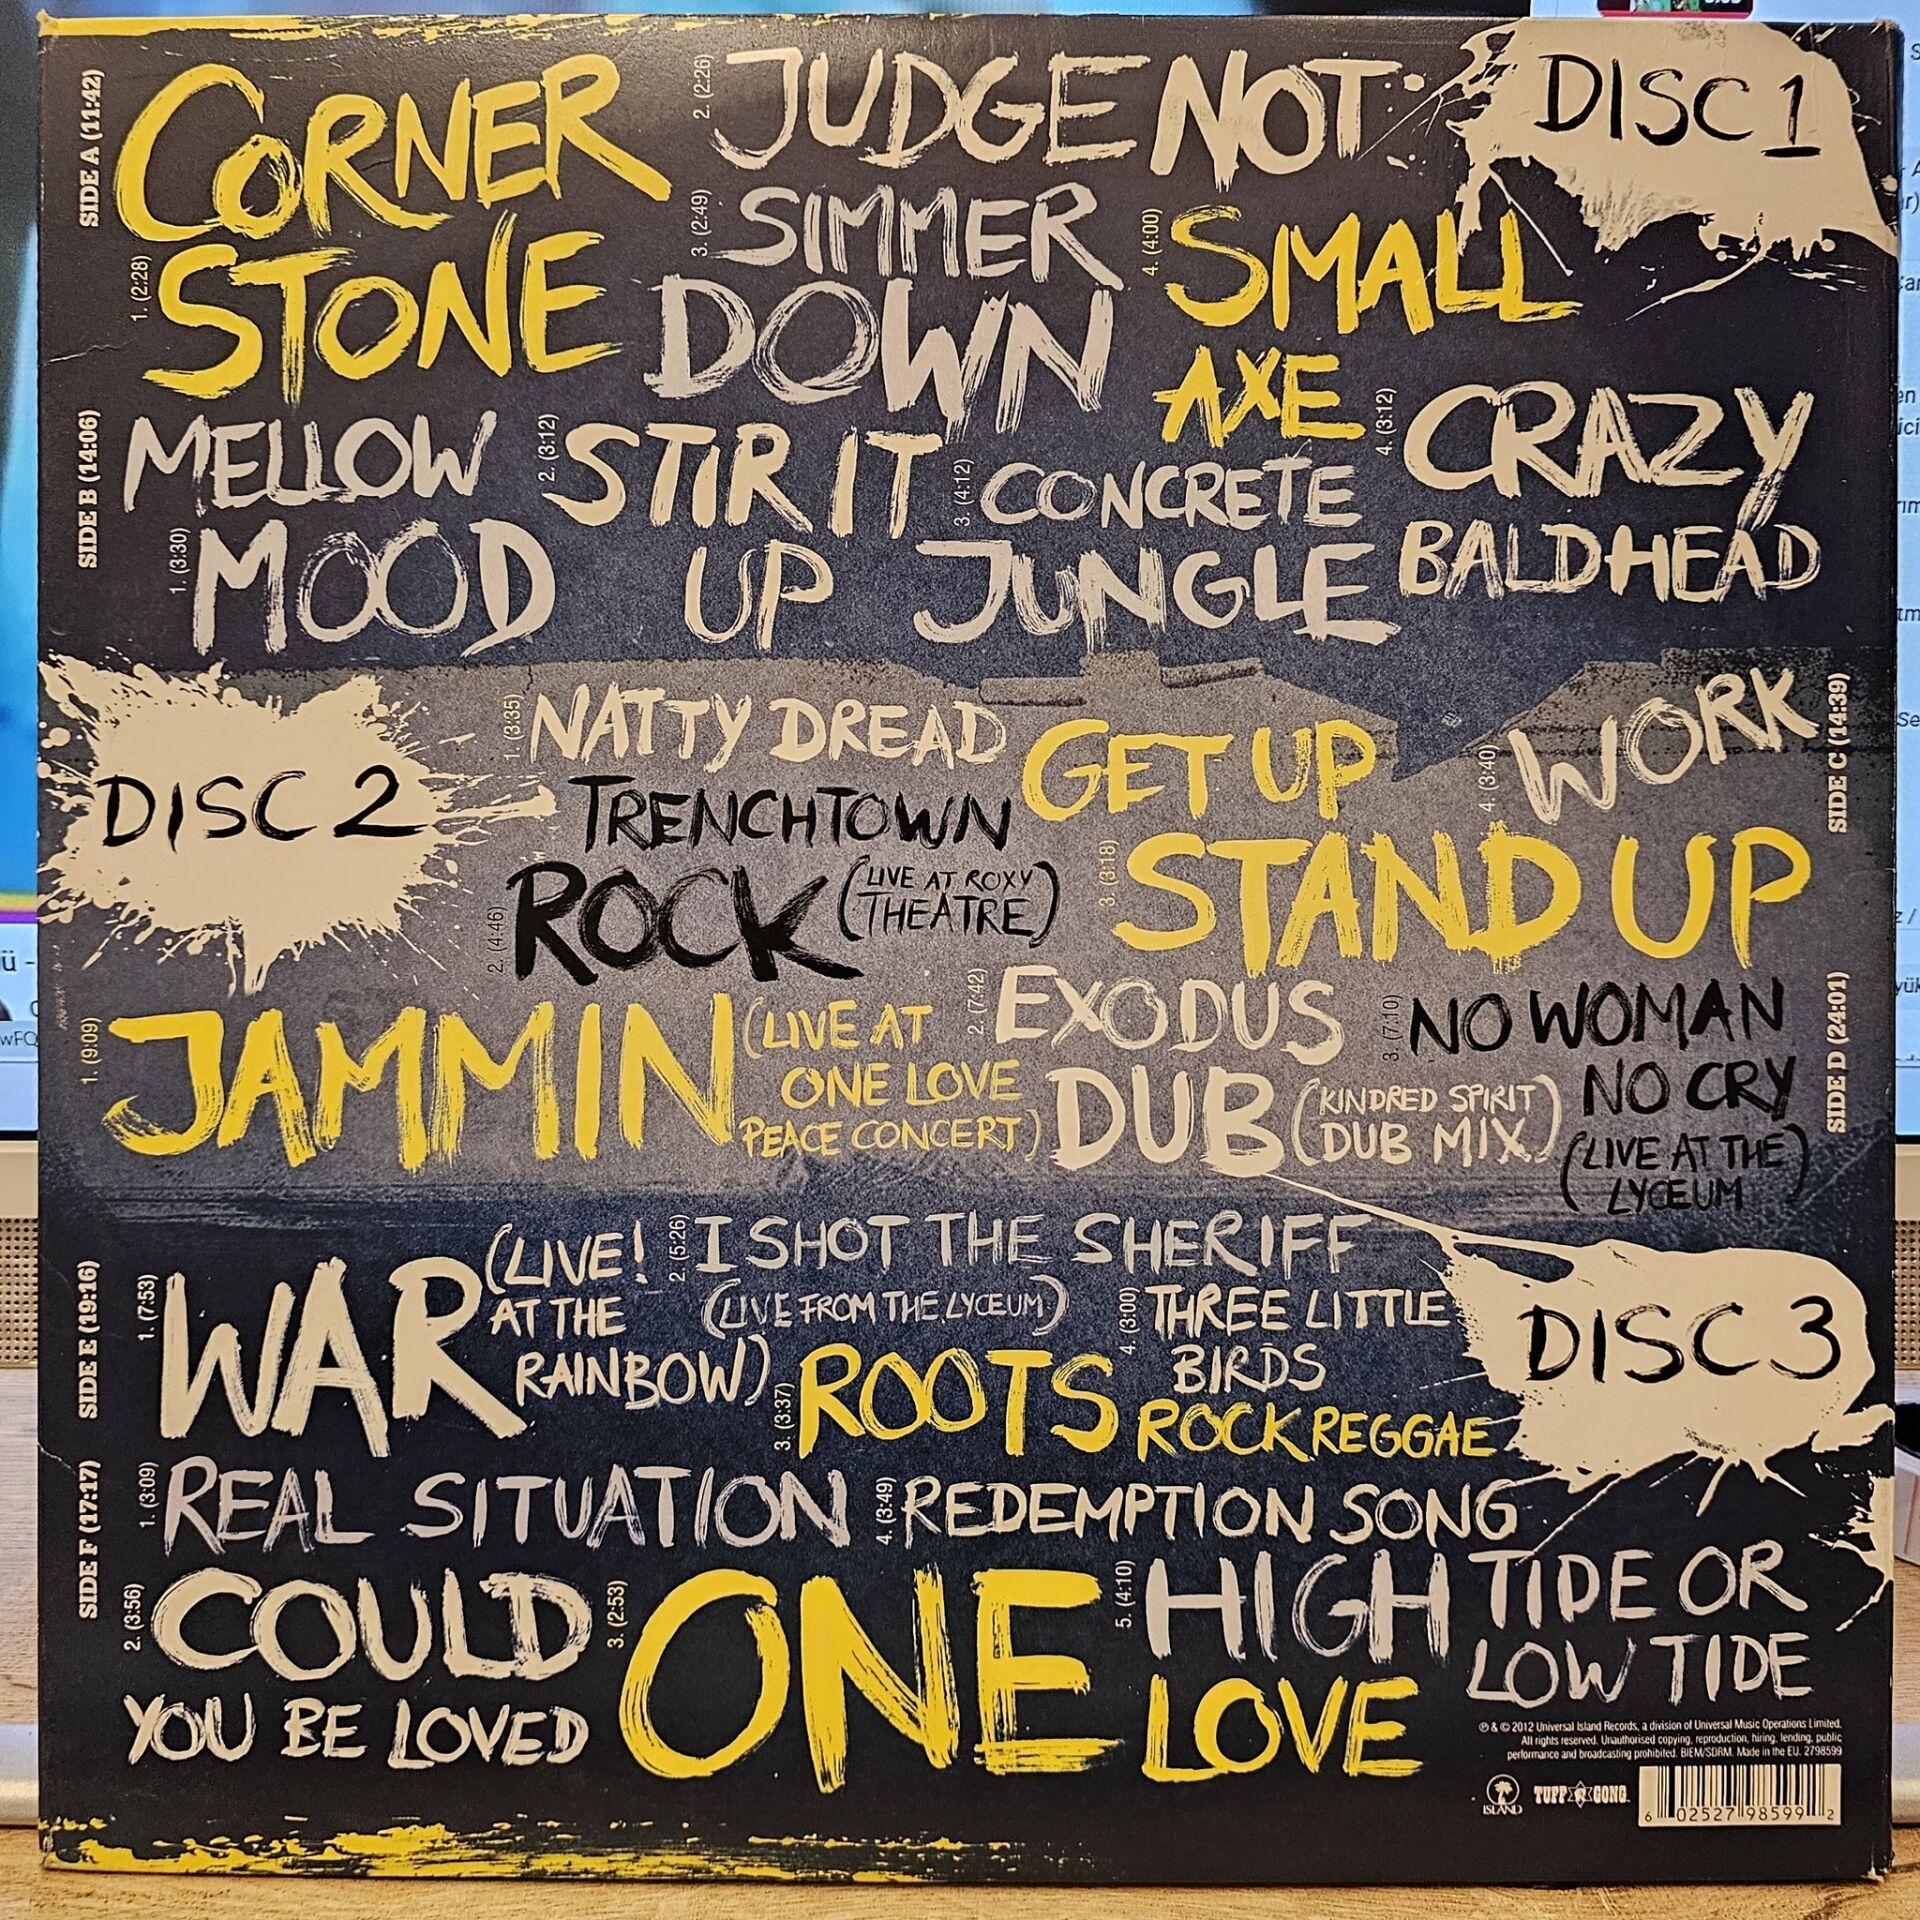 SIDE A (11:42)
1. (2:28)
CORNER
STONE
2. (2:26)
JUDGE NOT
3. (2:49)
SIMMER
DOWN
4. (4:00)
SMALL
AXE
DISC 1
SIDE B (14:06)
1. (3:30)
MELLOW
MOOD
2. (3:12)
STIR IT
UP
3. (4:12)
CONCRETE
JUNGLE
4. (3:12)
CRAZY
BALDHEAD
DISC 2
SIDE C (14:39)
1. (3:35)
NATTY DREAD
2. (4:46)
TRENCHTOWN
ROCK (LIVE AT ROXY
THEATRE)
3. (3:18)
GET UP
STAND UP
4. (3:40)
WORK
SIDE D (24:01)
1. (9:09)
JAMMIN (LIVE AT
ONE LOVE
PEACE CONCERT)
2. (7:42)
EXODUS
DUB (KINDRED SPIRIT
DUB MIX)
3. (7:10)
NO WOMAN
NO CRY
(LIVE AT THE
LYCEUM)
DISC 3
SIDE E (19:16)
1. (7:53)
WAR (LIVE!
AT THE
RAINBOW)
2. (5:26)
I SHOT THE SHERIFF
(LIVE FROM THE LYCEUM)
3. (3:37)
ROOTS
ROCK REGGAE
4. (3:00)
THREE LITTLE
BIRDS
SIDE F (17:17)
1. (3:09)
REAL SITUATION
2. (3:56)
COULD
YOU BE LOVED
3. (2:53)
ONE
LOVE
4. (3:49)
REDEMPTION SONG
5. (4:10)
HIGH TIDE OR
LOW TIDE
℗ & © 2012 Universal Island Records, a division of Universal Music Operations Limited.
All rights reserved. Unauthorised copying, reproduction, hiring, lending, public
performance and broadcasting prohibited. BIEM/SDRM. Made in the EU. 2798599
ISLAND
TUFF GONG
6 02527 98599 2